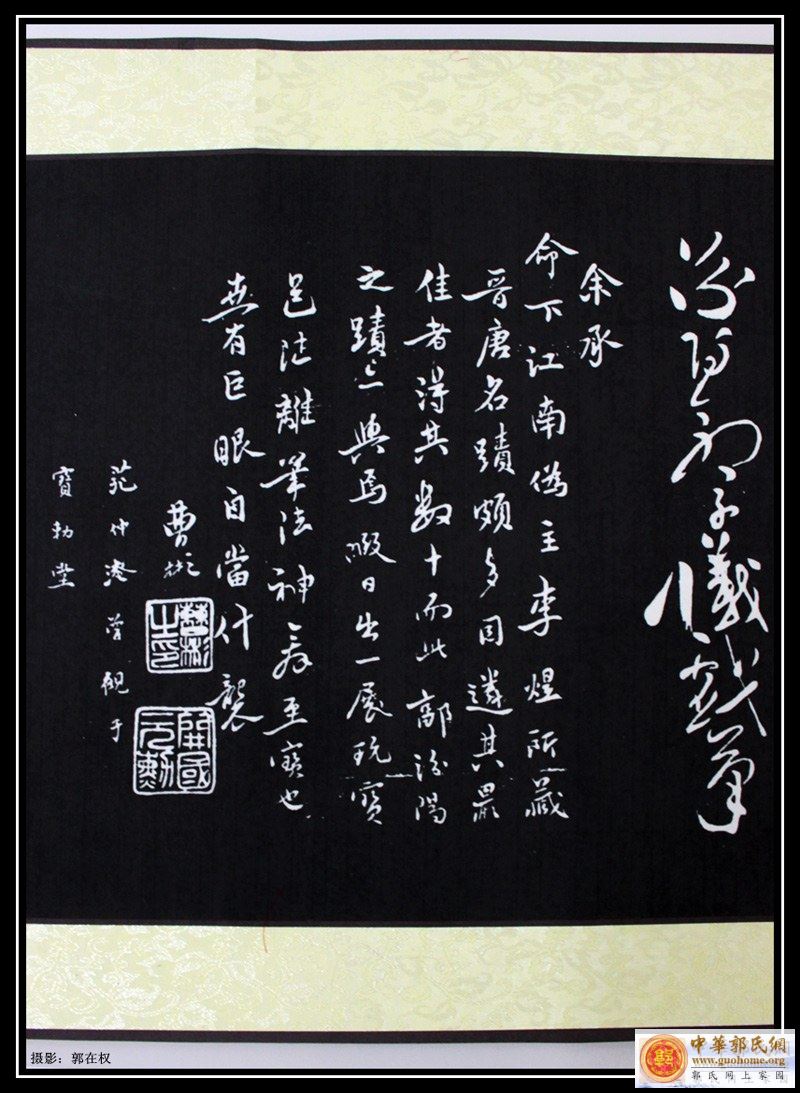 汾陽郭子儀戲筆
余承
命下江南偽主李煜所藏
晉唐名蹟頗多因遴其最
佳者得其數十而此鄗汾陽
之蹟亦與焉暇日出一展玩寶
邑陸離筆法神奇至寶也
世有巨眼自當什襲
曹彬
曹彬之印
開國元勳
范仲淹嘗觀于
寶勅堂
摄影：郭在权
郭
中華郭氏網
www.guohome.org
郭氏网上家园